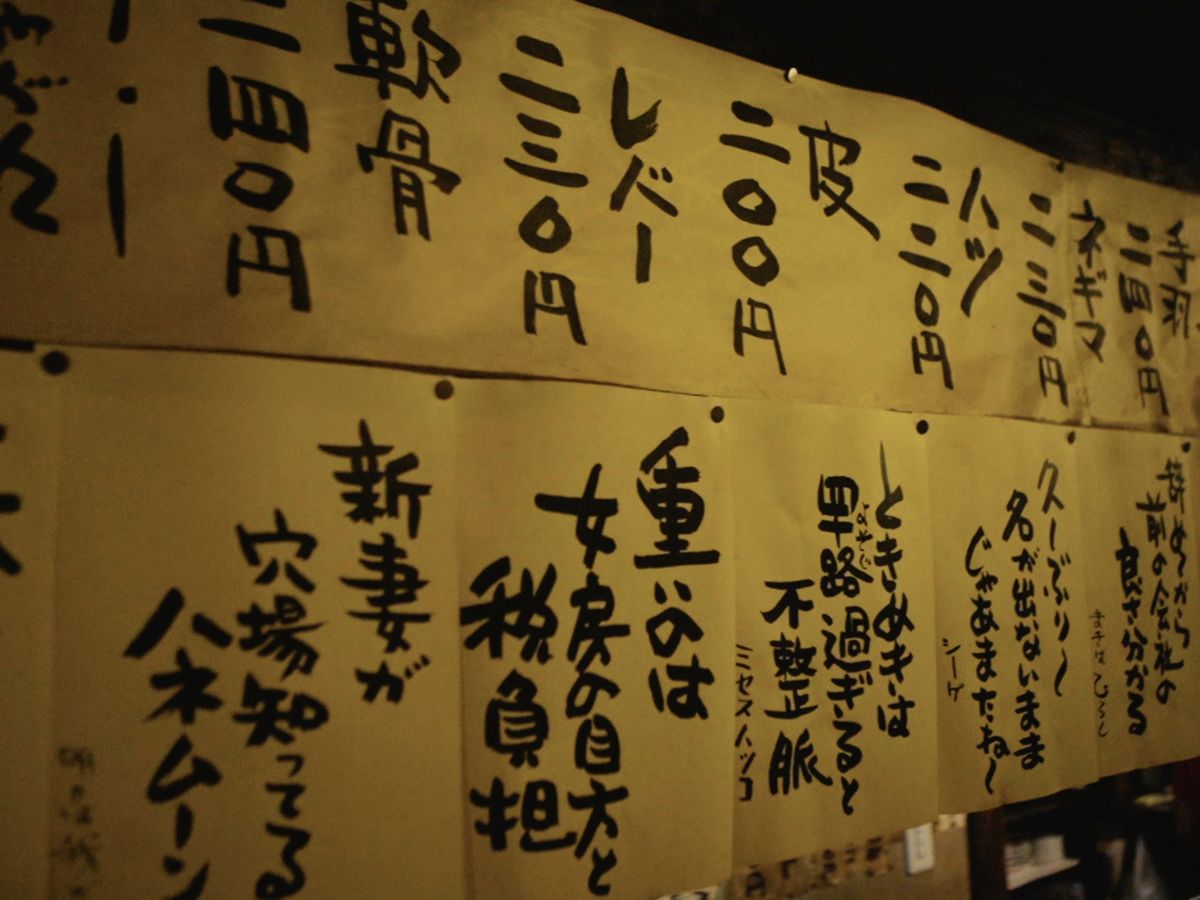 手羽
二四〇円
ネギマ
二三〇円
ハツ
二二〇円
皮
二〇〇円
レバー
二三〇円
軟骨
二四〇円
辞めてから
前の会社の
良さ分かる
久ーしぶり〜
名が出ないまま
じゃあまたね〜
シーゲ
ときめきは
四十路過ぎると
よそじ
不整脈
ミセスハッコ
重いのは
女房の目方と
税負担
新妻が
穴場知ってる
ハネムーン